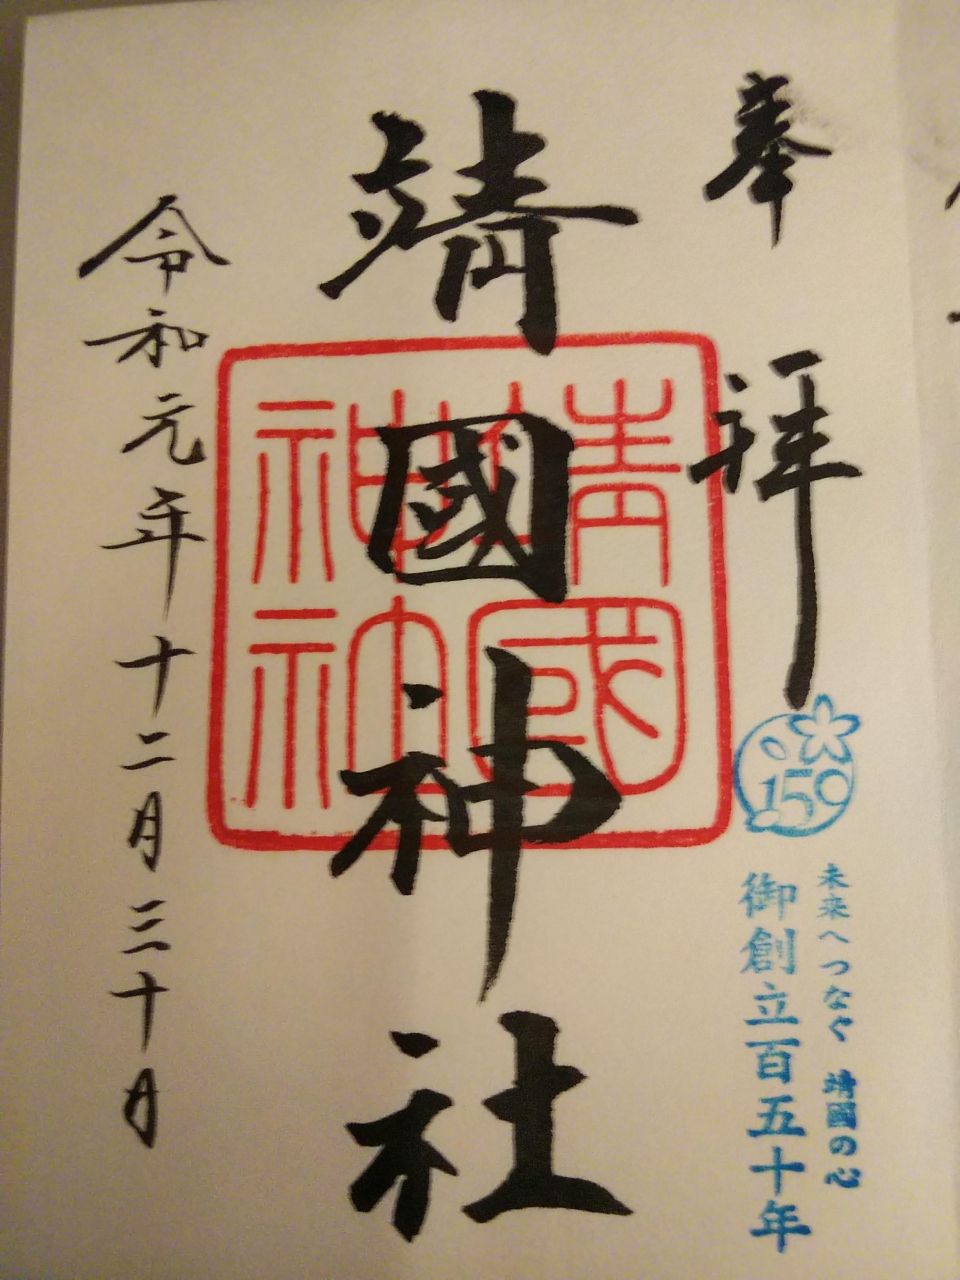 奉拝
150
未来へつなぐ 靖國の心
御創立百五十年
靖國神社
靖國神社
令和元年十二月三十日